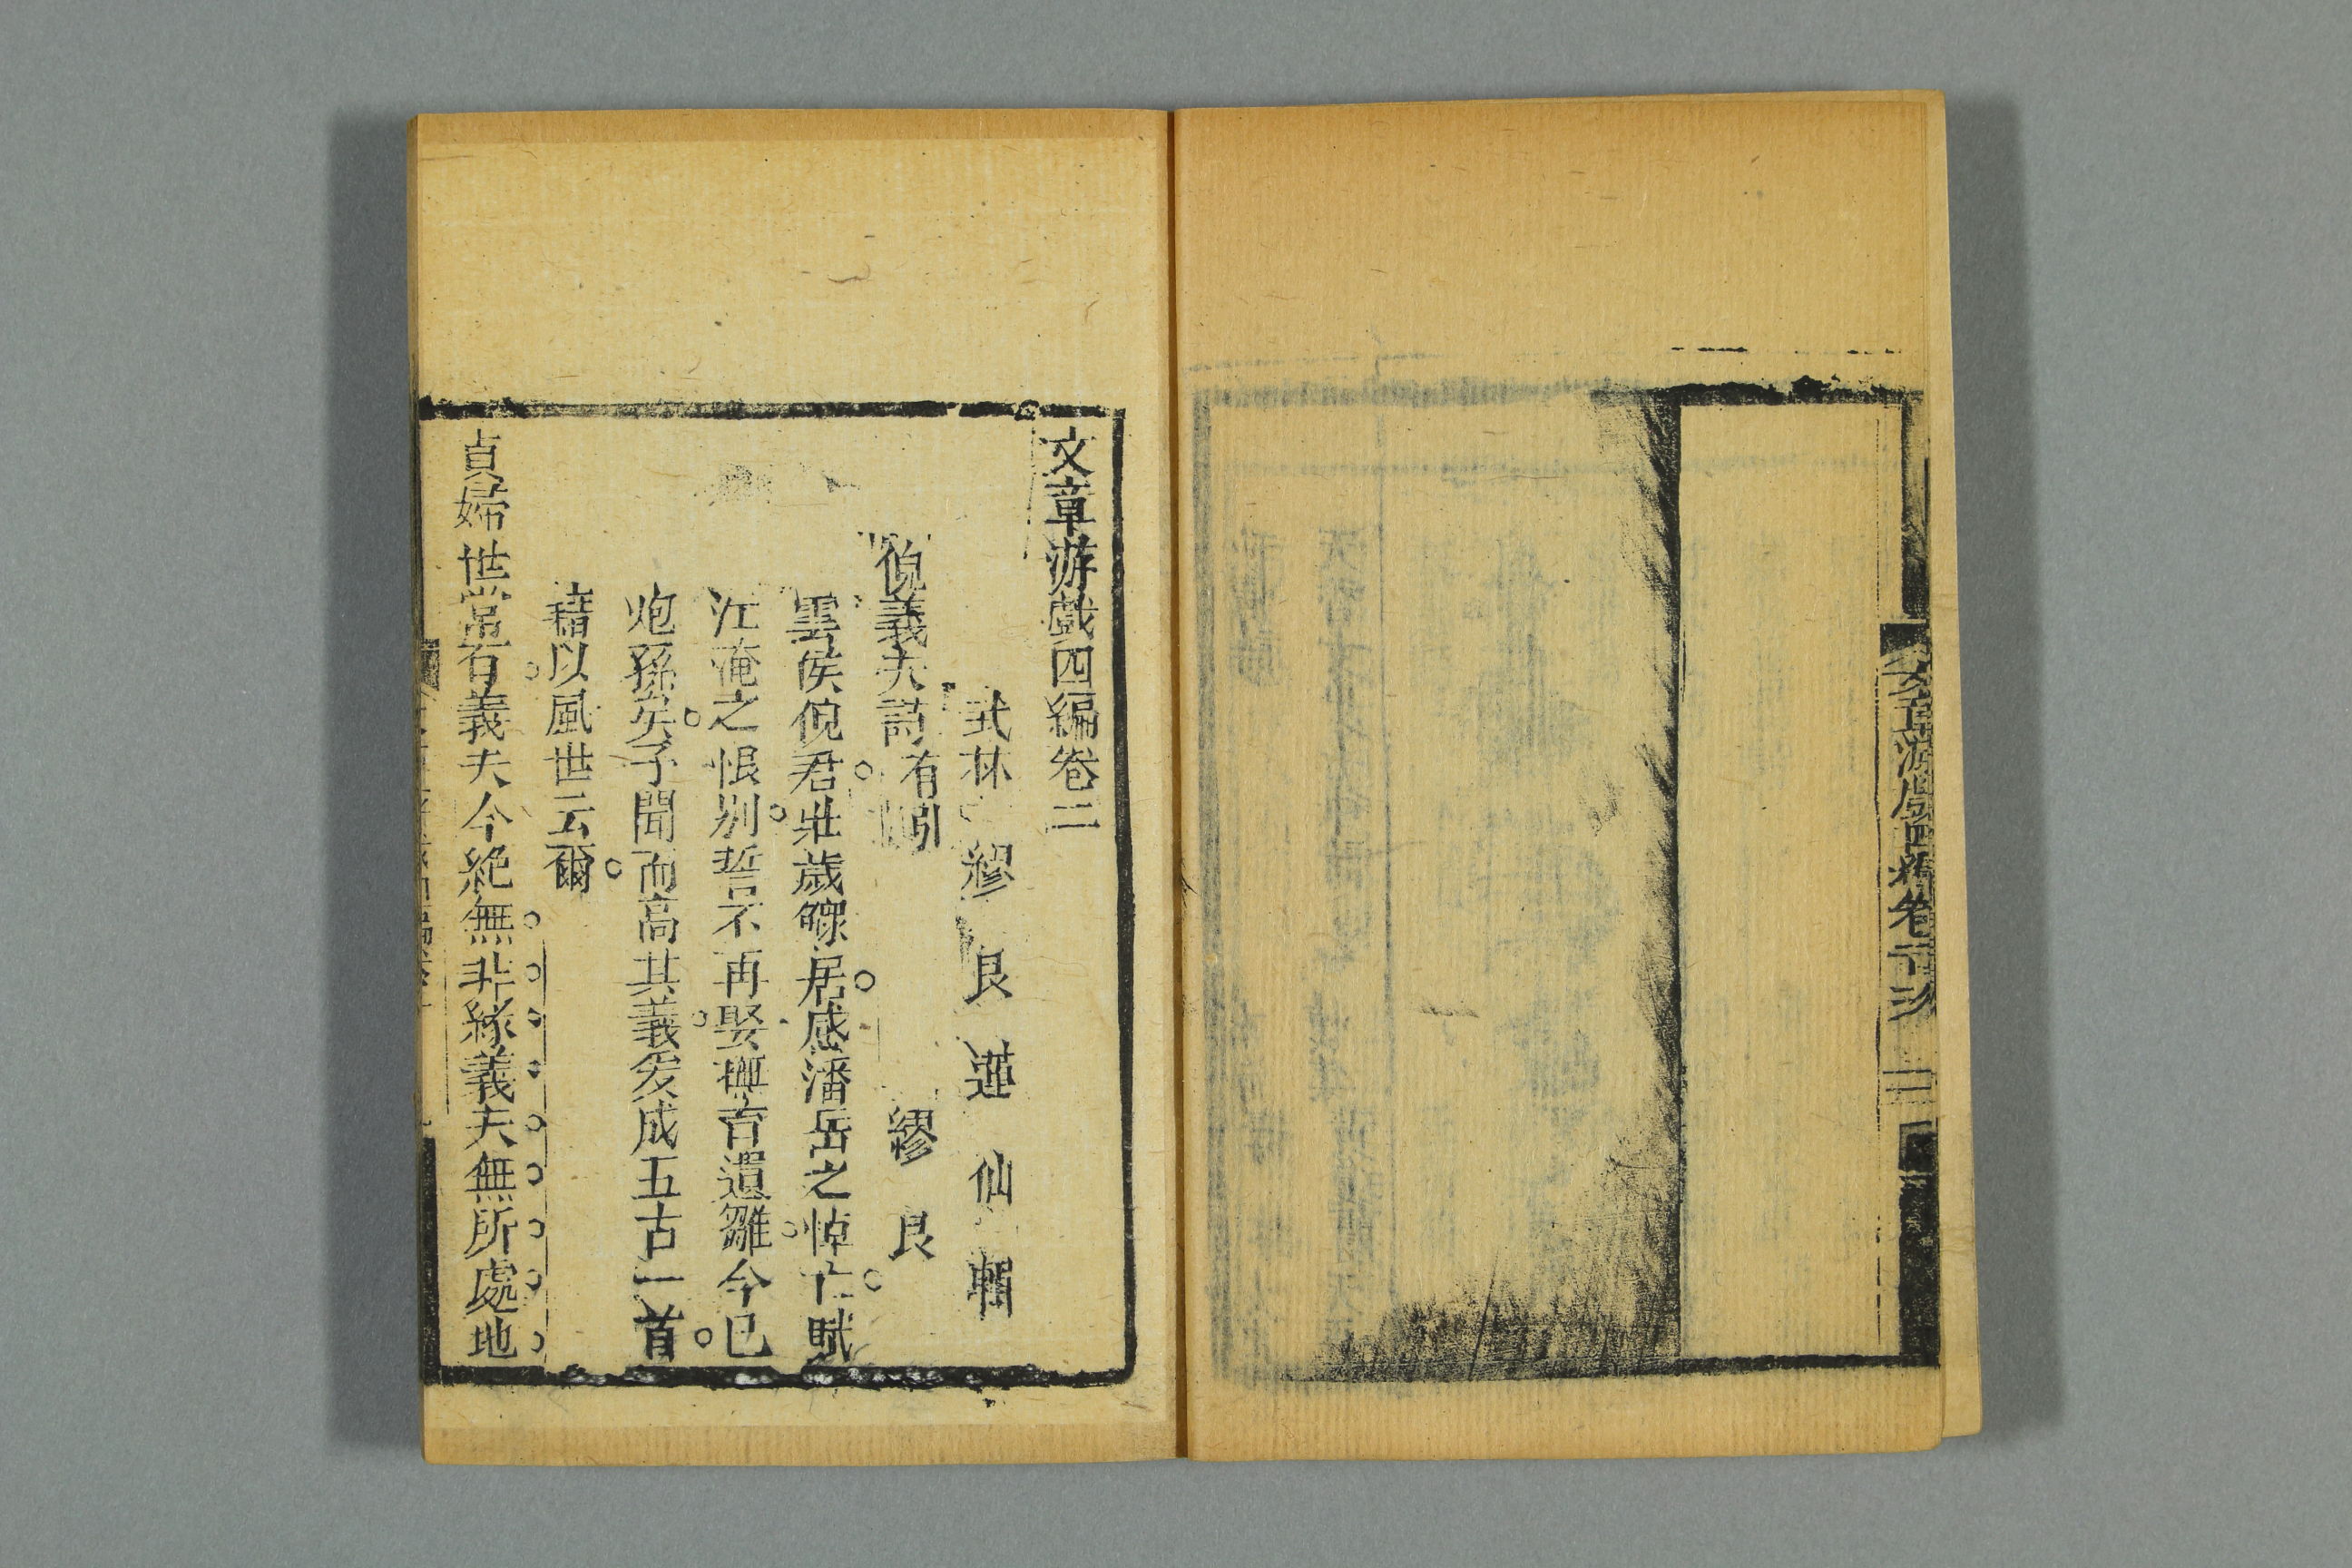 文章游戲四編卷二
文章游戲四編卷二
武林 繆艮 蓮仙 輯
倪義夫詩有引 繆艮
雲侯倪君壯歲鰥居感潘岳之悼亡賦
江淹之恨別誓不再娶撫育遺雛今已
炮孫矣予聞而高其義爰成五古一首
藉以風世云爾
貞婦世常有義夫今絕無非緣義夫無所處地